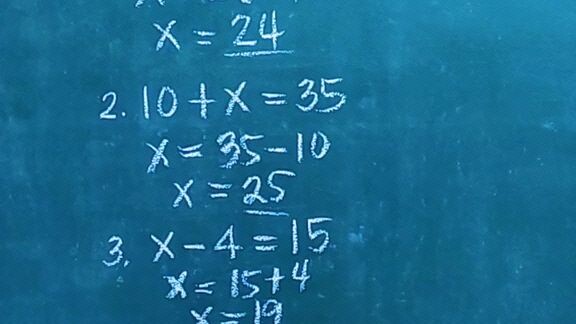 x = 24
2. 10 + x = 35
x = 35 - 10
x = 25
3. x - 4 = 15
x = 15 + 4
x = 19